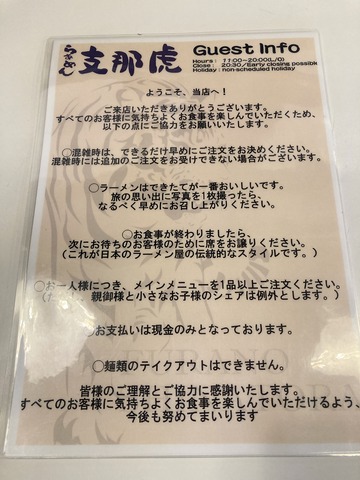 らぁめん 支那虎 Guest Info
Hours : 11:00~20:00(L/O)
Close : 20:30/Early closing possible
Holiday : non-scheduled holiday
ようこそ、当店へ！
ご来店いただきありがとうございます。
すべてのお客様に気持ちよくお食事を楽しんでいただくため、
以下の点にご協力をお願いいたします。
○混雑時は、できるだけ早めにご注文をお決めください。
混雑時には追加のご注文をお受けできない場合がございます。
○ラーメンはできたてが一番おいしいです。
旅の思い出に写真を1枚撮ったら、
なるべく早めにお召し上がりください。
○お食事が終わりましたら、
次にお待ちのお客様のために席をお譲りください。
（これが日本のラーメン屋の伝統的なスタイルです。）
○お一人様につき、メインメニューを1品以上ご注文ください。
（ただし、親御様と小さなお子様のシェアは例外とします。）
○お支払いは現金のみとなっております。
○麺類のテイクアウトはできません。
皆様のご理解とご協力に感謝いたします。
すべてのお客様に気持ちよくお食事を楽しんでいただけるよう、
今後も努めてまいります